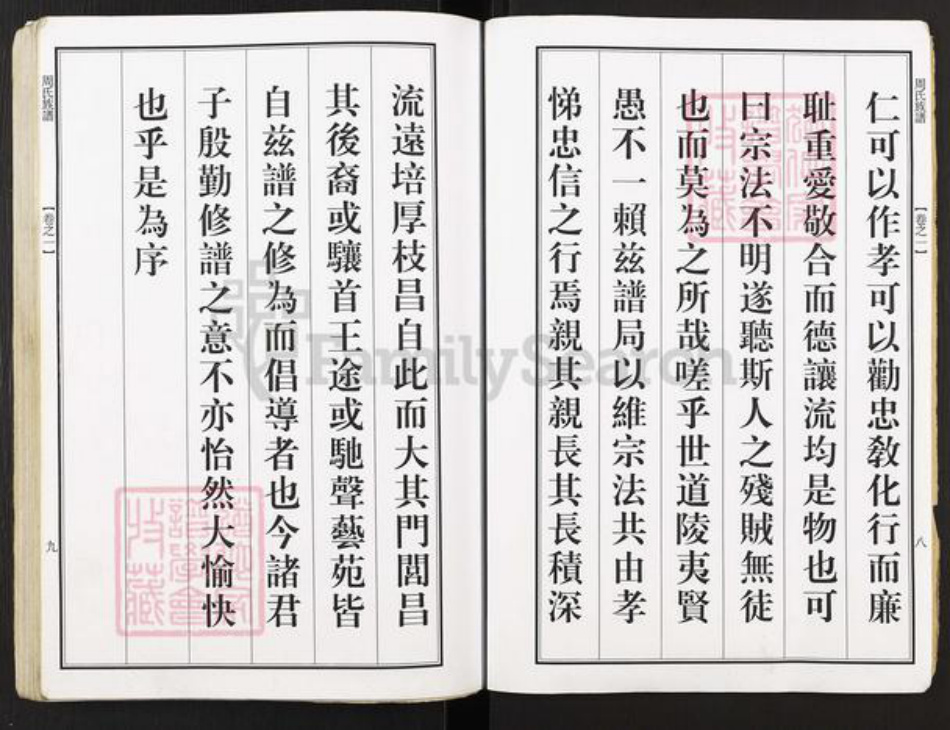 周氏族譜
【卷之一】
八
仁可以作孝可以勸忠教化行而廉
耻重愛敬合而德讓流均是物也可
曰宗法不明遂聽斯人之殘賊無徒
也而莫為之所哉嗟乎世道陵夷賢
愚不一賴茲譜局以維宗法共由孝
悌忠信之行焉親其親長其長積深
流遠培厚枝昌自此而大其門閭昌
其後裔或驤首王途或馳聲藝苑皆
自茲譜之修為而倡導者也今諸君
子殷勤修譜之意不亦怡然大愉快
也乎是為序
周氏族譜
【卷之一】
九
FamilySearch